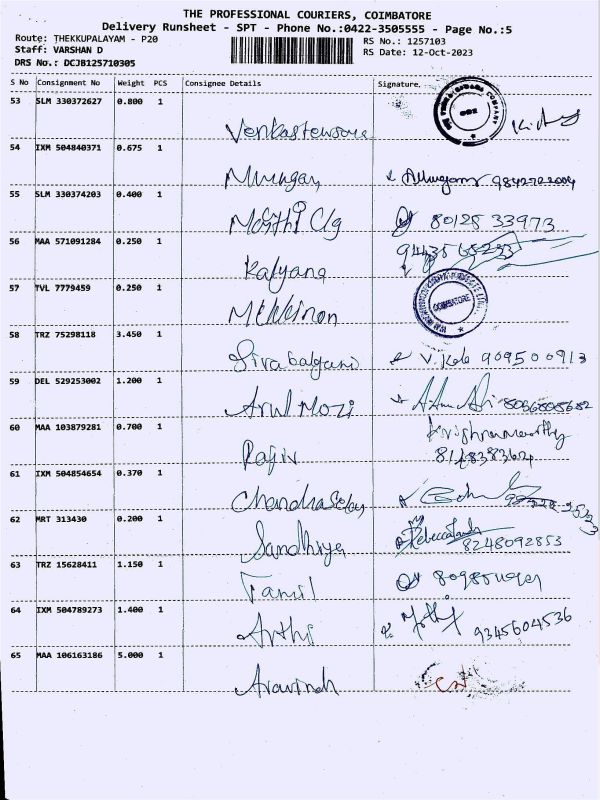 THE PROFESSIONAL COURIERS, COIMBATORE
Delivery Runsheet - SPT - Phone No.:0422-3505555 - Page No.:5
Route: THEKKUPALAYAM - P20
RS No.: 1257103
Staff: VARSHAN D
RS Date: 12-Oct-2023
DRS No.: DCJB125710305
S No Consignment No Weight PCS Consignee Details Signature.
53 SLM 330372627 0.800 1
54 IXM 504840371 0.675 1
Murugan
55 SLM 330374203 0.400 1
C/g 80125 33973
56 MAA 571091284 0.250 1
Kalyana
57 TVL 7779459 0.250 1
COIMBATORE
58 TRZ 75298118 3.450 1
59 DEL 529253002 1.200 1
Arul Mozi
60 MAA 103879281 0.700 1
Krishnamoorthy
Rajiv
61 IXM 504854654 0.370 1
62 MRT 313430 0.200 1
Sandhiya 8248092853
63 TRZ 15628411 1.150 1
Tamil
64 IXM 504789273 1.400 1
Arthi 9345604536
65 MAA 106163186 5.000 1
Aravindh